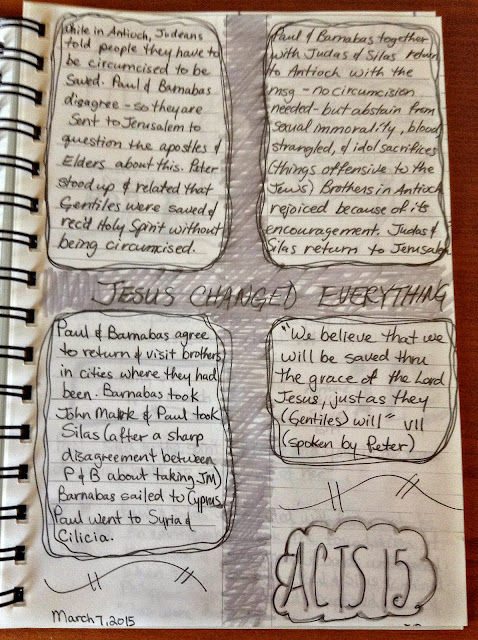 While in Antioch, Judeans
told people they have to
be circumcised to be
saved. Paul & Barnabas
disagree - so they are
sent to Jerusalem to
question the apostles &
Elders about this. Peter
stood up & related that
Gentiles were saved &
rec'd Holy Spirit without
being circumcised.
Paul & Barnabas together
with Judas & Silas return
to Antioch with the
msg - no circumcision
needed - but abstain from
sexual immorality, blood,
strangled, & idol sacrifices
(things offensive to the
Jews) Brothers in Antioch
rejoiced because of its
encouragement. Judas &
Silas return to Jerusalem
JESUS CHANGED EVERYTHING
Paul & Barnabas agree
to return & visit brothers
in cities where they had
been. Barnabas took
John Mark & Paul took
Silas (after a sharp
disagreement between
P & B about taking JM)
Barnabas sailed to Cyprus
Paul went to Syria &
Cilicia.
"We believe that we
will be saved thru
the grace of the Lord
Jesus, just as they
(Gentiles) will" v11
(spoken by Peter)
ACTS 15
March 7, 2015